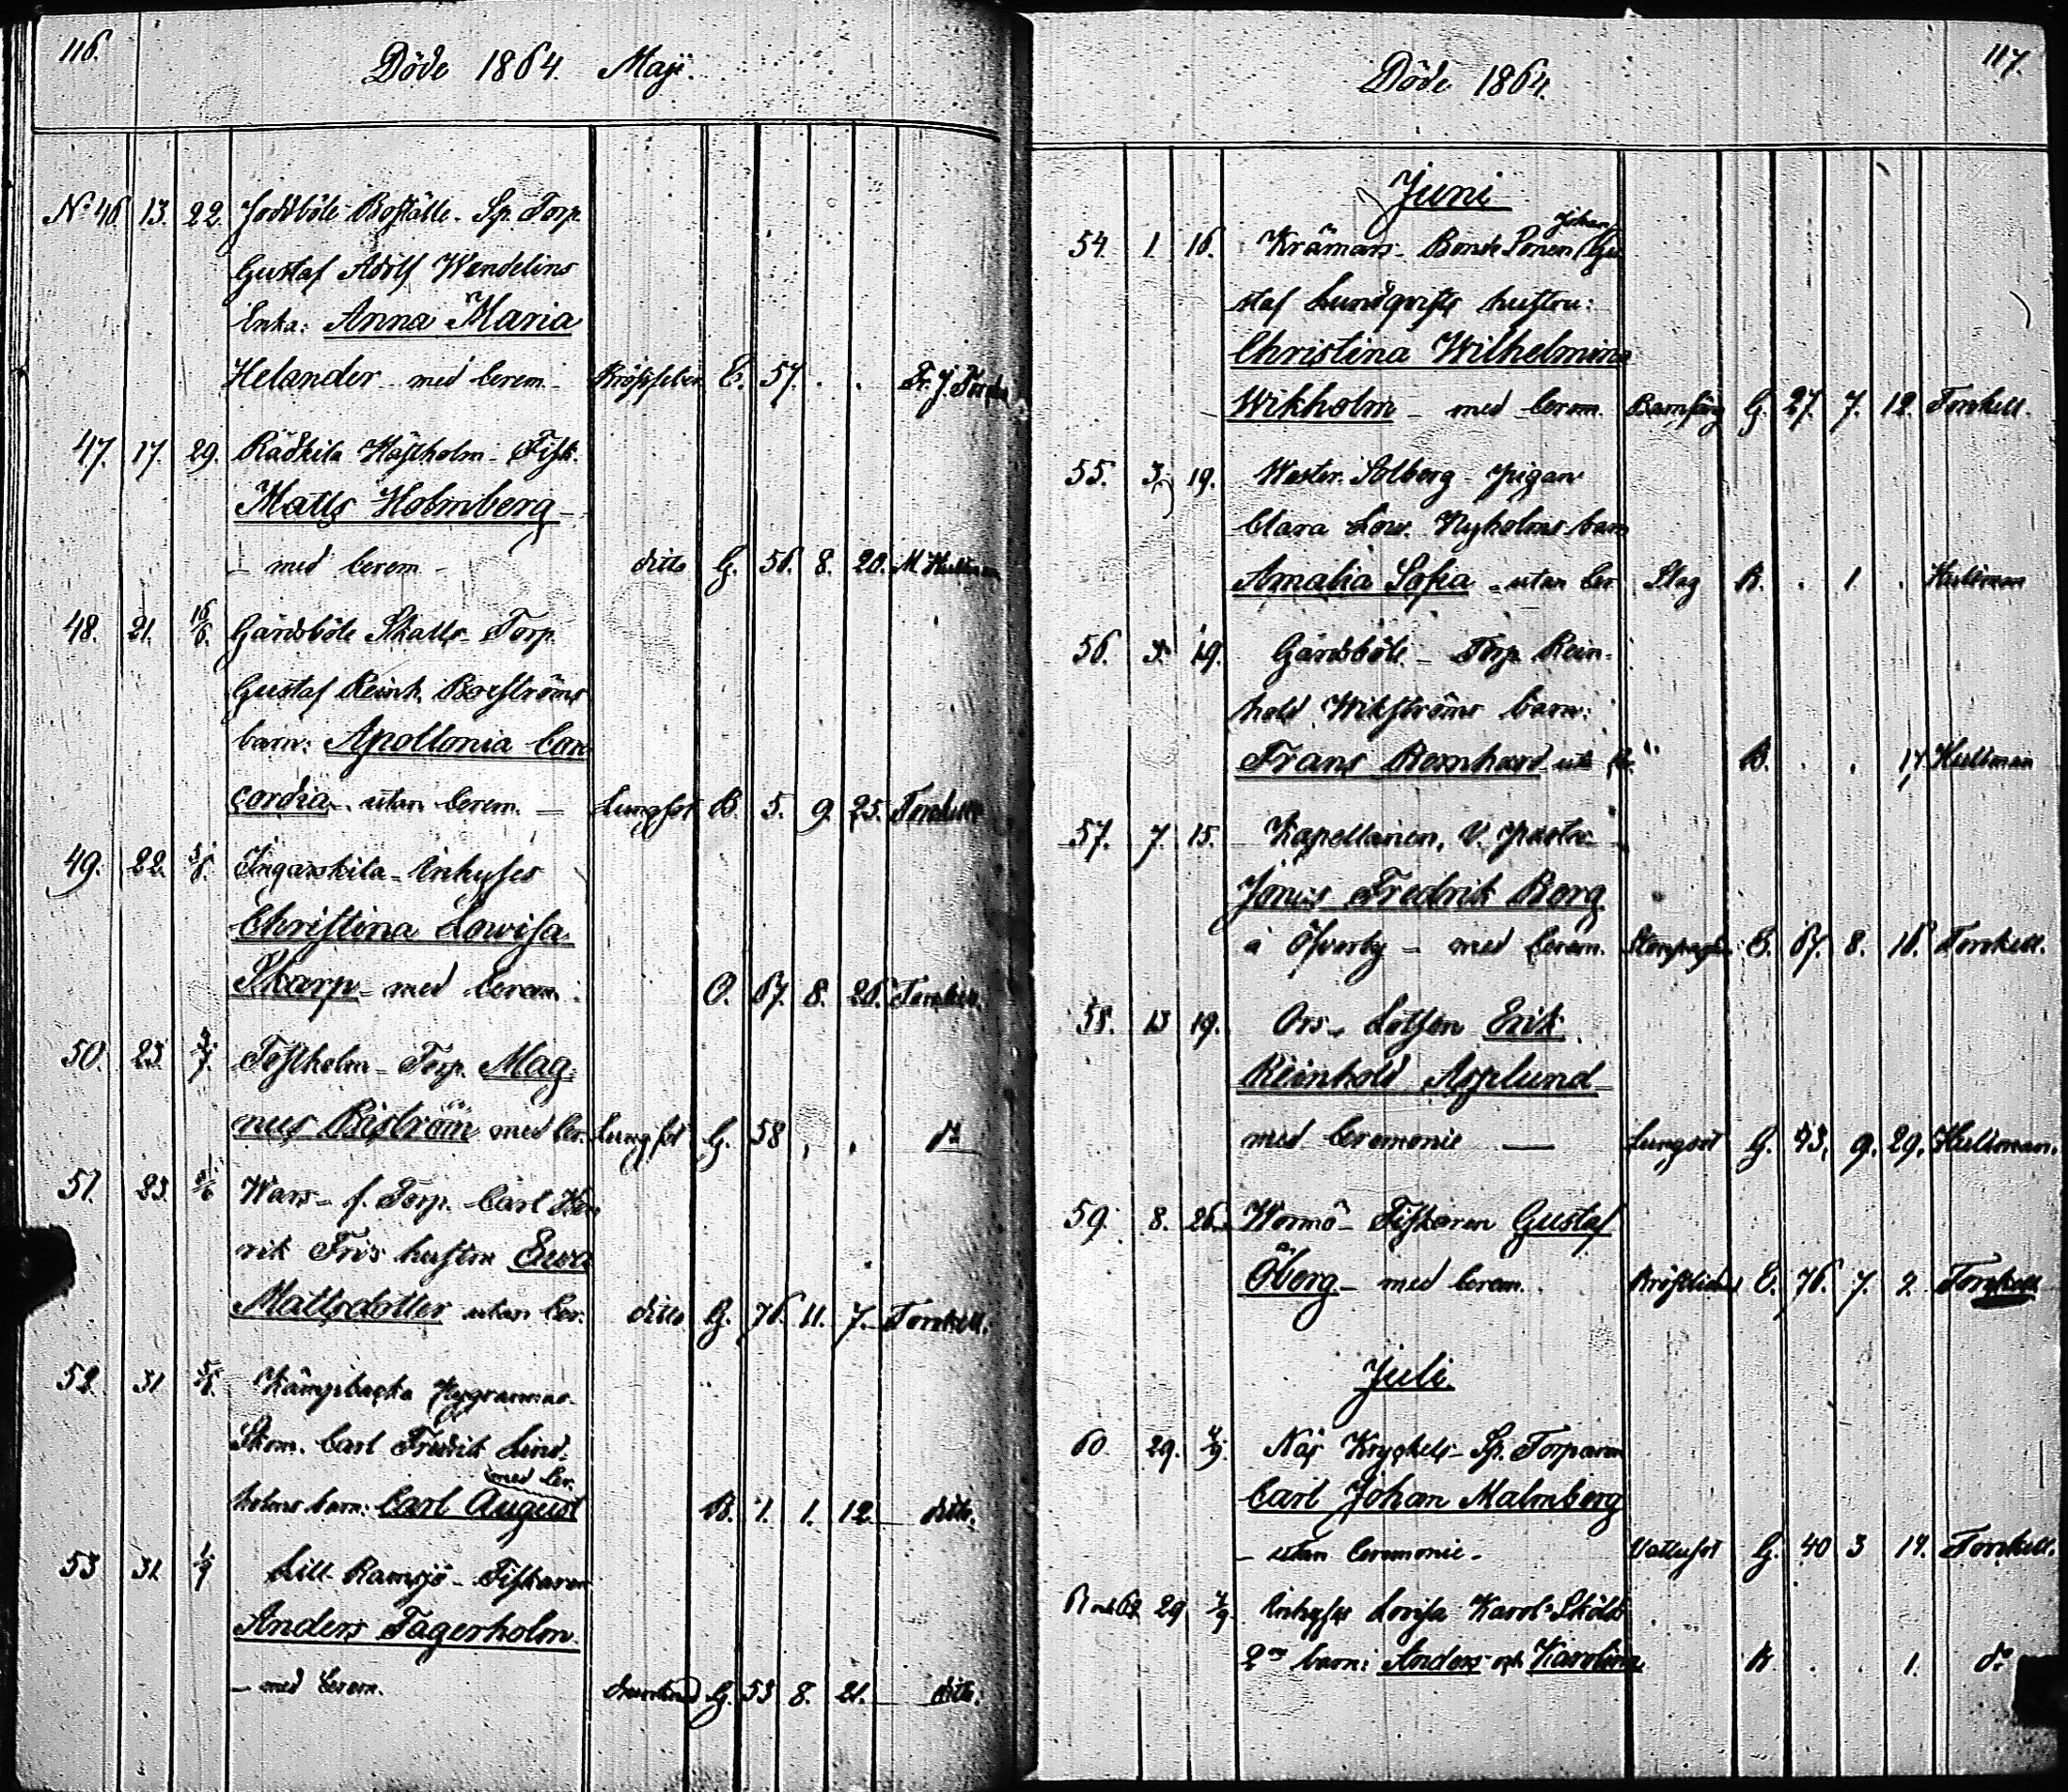 116.
Döde 1864. Maji.
No 46. 13. 22. Joddböle Boställe. Sp. Torp.
Gustaf Adolf Wendelins
Enka: Anna Maria
Helander med Cerem. E. 57. . .
47. 17. 29. Rådkila Hästholm - Fisk.
Matts Holmberg
- med Cerem - ditto G. 56. 8. 20. M Hultman
48. 21. Gårdsböle Skatts - Torp.
Gustaf Reinh. Boxströms
barn: Apollonia Con
cordia utan Cerem. Lungsot B. 5. 9. 25. Torckell
49. 22. 5/6. Ingarskila - Inhyses
Christina Lowisa
Skarp - med Cerem. O. 67. 8. 26. Torckell.
50. 23. Tostholm - Torp. Mag:
nus Biström med Cer. Lungsot G. 58 . . do
51. 23. Wars - f. Torp. Carl Hen
rik Fris hustru Ewa
Mattsdotter utan Cer. ditto G. 76. 11. 7. Torckell.
52. 31
Skom. Carl Fredrik Lind-
med Cer.
holms barn: Carl August B. 1. 1. 12. ditto.
53 31 Lill Ramsjö - Fiskaren
Anders Fagerholm
- med Cerem. G. 53 8. 21. ditto.
117.
Döde 1864.
Juni
54. 1 16. Krämars - Bonde Sonen Johan Gu
staf Lundqvists hustru:
Christina Wilhelmina
Wikholm - med Cerem. Barnsäng G. 27. 7. 12. Torckell.
55. 3. 19. Wester Solberg - pigan
Clara Low. Nyholms barn
Amalia Sofia - utan Cer. Slag B. . 1 . Hultman
56. 3. 19. Gårdsböle - Torp. Rein-
hold Wikströms barn:
Frans Bernhard B. . . 17 Hultman
57. 7. 15. Kapellanen, V. pastor
Jonas Fredrik Borg
å Öfverby - med Cerem. E. 67. 8. 16. Torckell.
58. 13 19. Ors - Lotsen Erik
Reinhold Asplund
med Ceremonie — Lungsot G. 43. 9. 29. Hultman.
59. 8. 26. Wormö - Fiskaren Gustaf
Öberg - med Cerem. E. 76. 7. 2. Torckell
Juli.
60. 29. Näs Krygkels - Sp. Torparen
Carl Johan Malmberg
- utan Ceremonie. Vattusot G. 40 3 14. Torckell.
61 och 62 29 Inhyses Lovisa Karol. Skölds
2ne barn: Anders och Karolina B . . 1. do